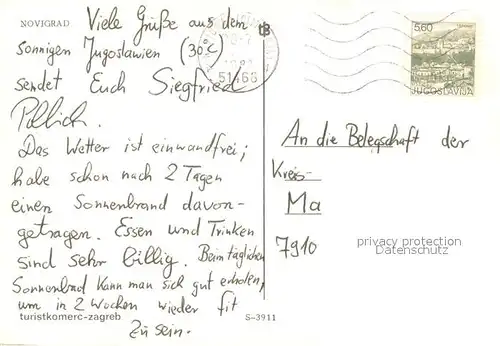 NOVIGRAD
Viele Grüße aus dem
sonnigen Jugoslawien (30°C)
sendet Euch Siegfried
Pollich.
Das Wetter ist einwandfrei;
habe schon nach 2 Tagen
einen Sonnenbrand davon-
getragen. Essen und Trinken
sind sehr billig. Beim täglichen
Sonnenbad kann man sich gut erholen,
um in 2 Wochen wieder fit
zu sein.
turistkomerc-zagreb
S-3911
51466
5.60
JUGOSLAVIJA
An die Belegschaft der
Kreis-
Ma
7910
privacy protection
Datenschutz